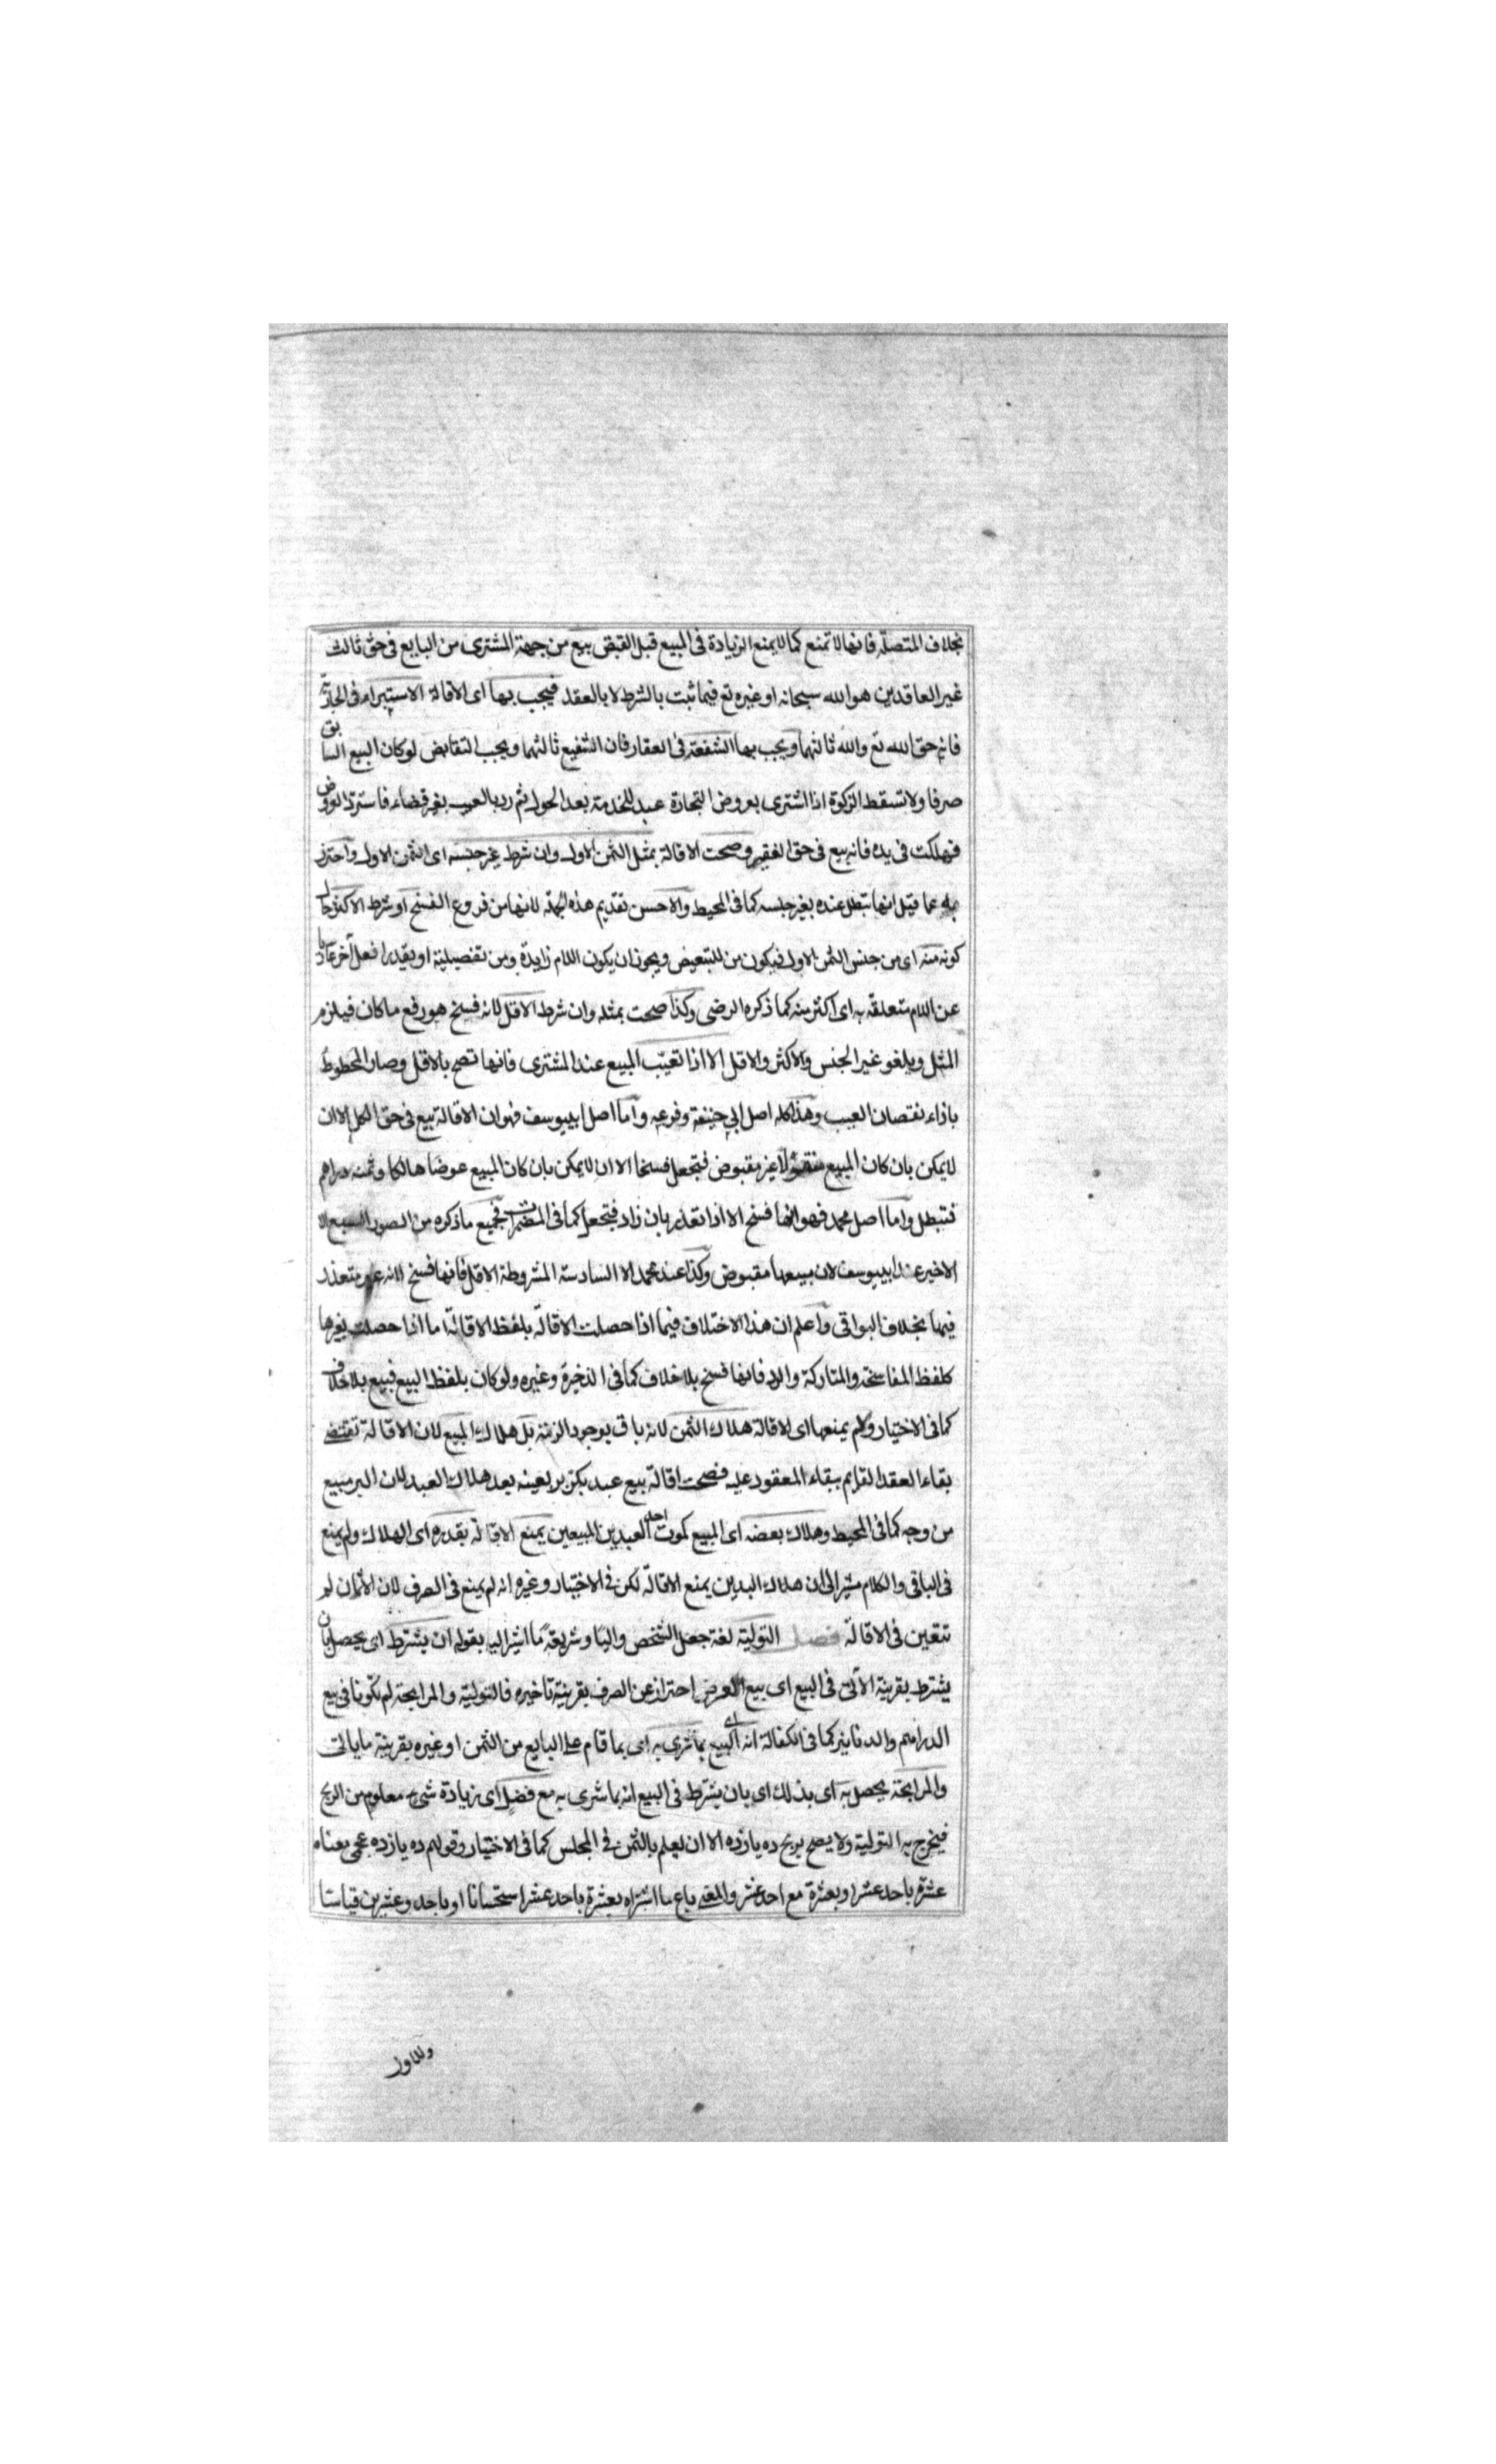 بخلاف المتصلة فانها لا تمنع كما لا يمنع الزيادة فى المبيع قبل القبض بيع من جهة المشترى من البايع فى حق ثالث
غير العاقدين هو الله سبحانه او غيره تع فيما ثبت بالشرط لا بالعقد فيجب بها اى الاقالة الاستبراء فى الجارية
فانه حق الله تع والله ثالثهما ويجب بها الشفعة فى العقار فان الشفيع ثالثهما ويجب التقابض لو كان البيع السابق
صرفا ولا تسقط الزكوة اذا اشترى بعروض التجارة عبد للخدمة بعد الحول ثم رد بالعيب بغير قضاء فاسترد العروض
فهلكت فى يده فانه بيع فى حق الفقير وصحت الاقالة بمثل الثمن الاول وان شرط غير جنسه اى الثمن الاول واحترز
به عما قيل انها تبطل عنده بغير جنسه كما فى المحيط والاحسن تقديم هذه الجملة لانها من فروع الفسخ او شرط الاكثر حال
كونه منه اى من جنس الثمن الاول فيكون من للتبعيض ويجوز ان يكون اللام زايدة ومن تفضيلية او يقدر افعل آخر عاريا
عن اللام متعلقة به اى اكثر منه كما ذكره الرضى وكذا صحت بمثله وان شرط الاقل لانه فسخ هو رفع ما كان فيلزم
المثل ويلغو غير الجنس والاكثر والاقل الا اذا تعيب المبيع عند المشترى فانها تصح بالاقل وصار المحطوط
بازاء نقصان العيب وهذا كله اصل ابى حنيفة وفرعه واما اصل ابييوسف فهو ان الاقالة بيع فى حق الكل الا ان
لا يمكن بان كان المبيع منقولا غير مقبوض فتجعل فسخا الا ان لا يمكن بان كان المبيع عوضا هالكا وثمنه دراهم
فتبطل واما اصل محمد فهو انها فسخ الا اذا تعذر بان زاد فتجعل كما فى المضمرات فجميع ما ذكره من الصور السبع الا
الاخير عند ابييوسف لان مبيعها مقبوض وكذا عند محمد الا السادسة المشروطة الاقل فانها فسخ لانه غير متعذر
فيها بخلاف البواقى واعلم ان هذا الاختلاف فيما اذا حصلت الاقالة بلفظ الاقالة اما اذا حصلت بغيرها
كلفظ المفاسخة والمتاركة والرد فانها فسخ بلا خلاف كما فى الذخيرة وغيره ولو كان بلفظ البيع فبيع بلا خلاف
كما فى الاختيار ولم يمنعها اى الاقالة هلاك الثمن لانه باق بوجود الذمة بل هلاك المبيع لان الاقالة تقتضى
بقاء العقد القايم ببقاء المعقود عليه فصحت اقالة بيع عبد بكر بر بعينه بعد هلاك العبد لان البر مبيع
من وجه كما فى المحيط وهلاك بعضه اى المبيع كموت احد العبدين المبيعين يمنع الاقالة بقدره اى الهلاك ولم يمنع
فى الباقى والكلام مشير الى ان هلاك البدلين يمنع الاقالة لكن فى الاختيار وغيره انه لم يمنع فى الصرف لان الاثمان لم
تتعين فى الاقالة فصل التولية لغة جعل الشخص واليا وشريعة ما اشير اليه بقوله ان يشترط اى يحصل بان
يشترط بقرينة الآتى فى البيع اى بيع العرض احتراز عن الصرف بقرينة تاخيره فالتولية والمرابحة لم تكونا فى بيع
الدراهم والدنانير كما فى الكفالة انه اى البيع بما شرى به اى بما قام على البايع من الثمن او غيره بقرينة ما ياتى
والمرابحة يحصل به اى بذلك اى بان يشترط فى البيع انه بما شرى به مع فضل اى زيادة شىء معلوم من الربح
فيخرج به التولية ولا يصح بربح ده يازده الا ان يعلم بالثمن فى المجلس كما فى الاختيار وقولهم ده يازده عجمى معناه
عشرة باحد عشر او بعشرة مع احد عشر والمعنى باع ما اشتراه بعشرة باحد عشر استحسانا او باحد وعشرين قياسا
وللاول